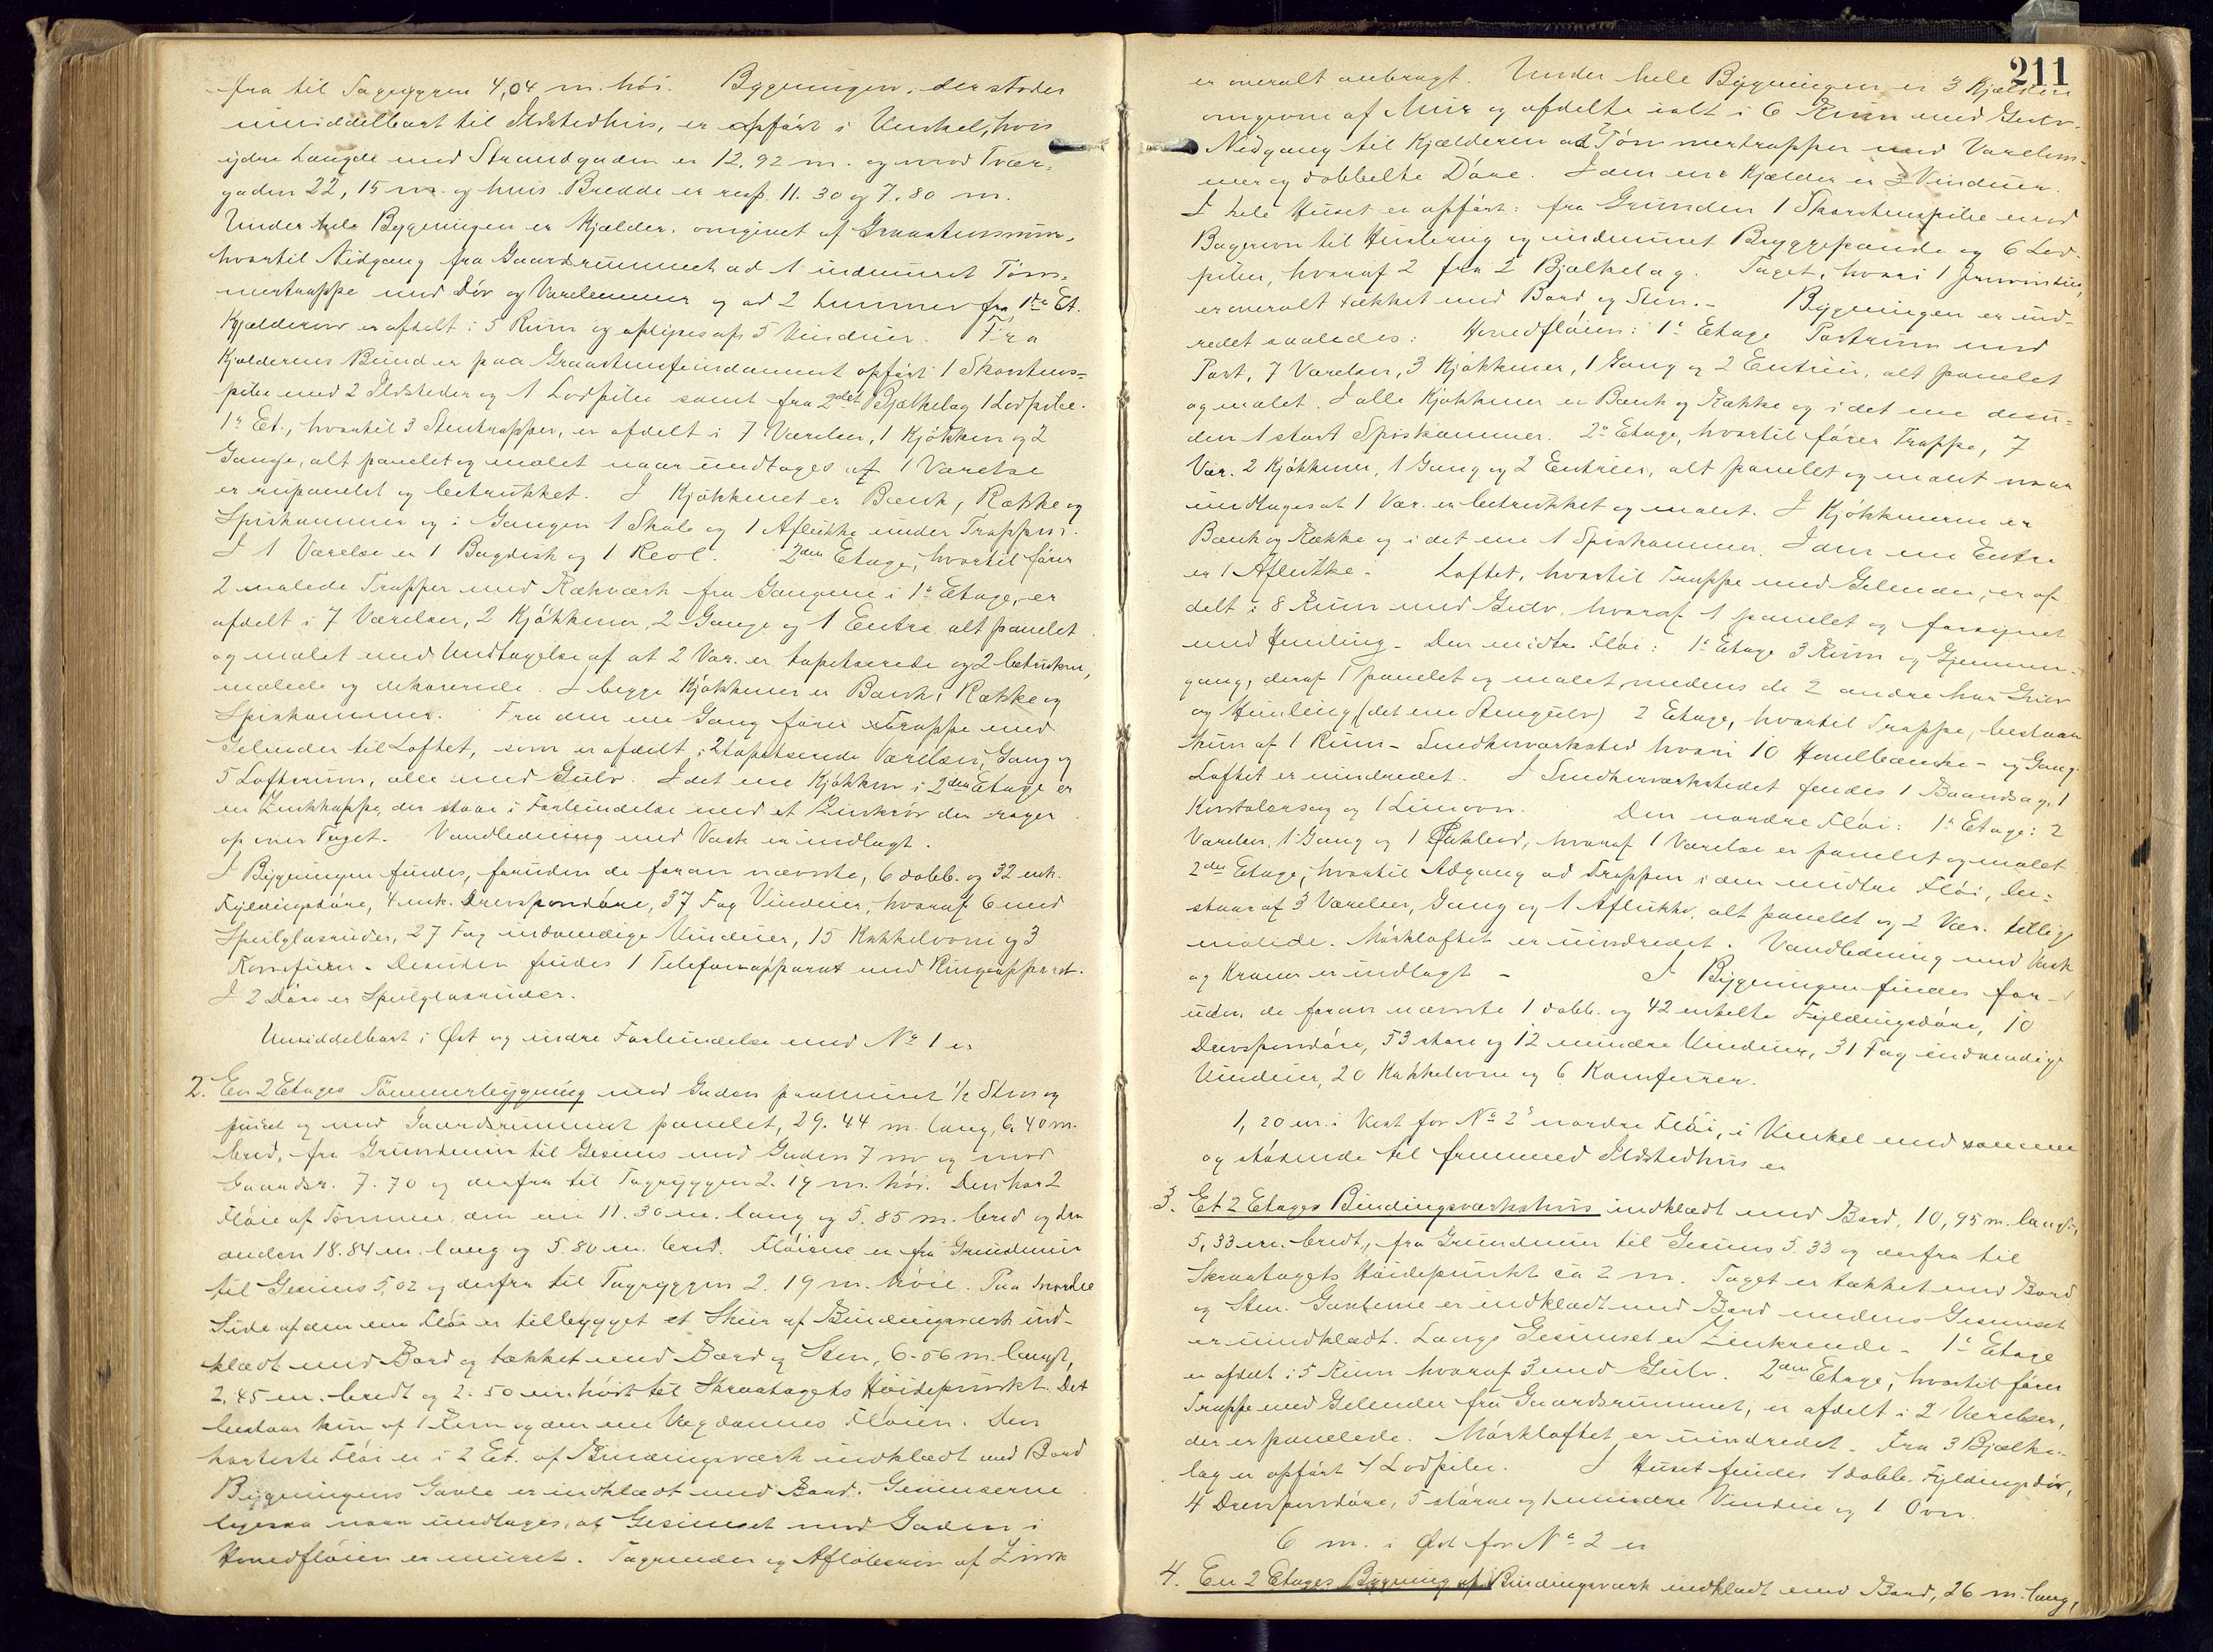 fra til Tagryggen 4,04 m. høi. Bygningen, der støder
umiddelbart til Ildstedhus, er opført i Vinkel, hvis
ydre Længde mod Strandgaden er 12.92 m. og mod Tvær-
gaden 22,15 m. og hvis Bredde er resp. 11.30 og 7.80 m.
Under hele Bygningen er Kjælder, omgivet af Graastensmur,
hvortil Nidgang fra Gaardsrummet ad 1 indmuret Tøm-
mertrappe med Dør og Varelemmer og ad 2 Lemmer fra 1ste Et.
Kjælderen er afdelt i 5 Rum og oplyses af 5 Vinduer. Fra
Kjælderens Bund er paa Graastensfundament opført 1 Skorstens-
pibe med 2 Ildsteder og 1 Lodpibe samt fra 2det Bjælkelag 1 Lodpibe.
1ste Et., hvortil 3 Stentrapper, er afdelt i 7 Værelser, 1 Kjøkken og 2
Gange, alt panelet og malet naar undtages af 1 Værelse
er upanelet og betrukket. I Kjøkkenet er Bænk, Række og
Spiskammer og i Gangen 1 Skab og 1 Aflukke under Trappen.
I 1 Værelse er 1 Bagdisk og 1 Reol. 2den Etage, hvortil fører
2 malede Trapper med Rækværk fra Gangene i 1ste Etage, er
afdelt i 7 Værelser, 2 Kjøkkener, 2 Gange og 1 Entre, alt panelet
og malet med Undtagelse af at 2 Vær. er tapetserede og 2 betrukne,
malede og dekorerede. I begge Kjøkkener er Bænk, Række og
Spiskammer. Fra den ene Gang fører Trappe med
Gelender til Loftet, som er afdelt i 2 tapetserede Værelser, Gang og
5 Loftsrum, alle med Gulv. I det ene Kjøkken i 2den Etage er
en Zinkkappe, der staar i Forbindelse med et Zinkrør der rager
op over Taget. Vandledning med Vask er indlagt.
I Bygningen findes, foruden de foran nævnte, 6 dobb. og 32 enk.
Fyldingsdøre, 4 enk. Drevspondøre, 37 Fag Vinduer, hvoraf 6 med
Speilglasruder, 27 Fag indvendige Vinduer, 15 Kakkelovne og 3
Komfurer. Desuden findes 1 Telefonapparat med Ringeapparat.
I 2 Døre er Speilglasruder.
Umiddelbart i Øst og indre Forbindelse med No 1 er
2. En 2 Etages Tømmerbygning mod Gaden paamuret 1/2 Sten og
pudset og mod Gaardsrummet panelet, 29.44 m. lang, 6.40 m.
bred, fra Grundmur til Gesims mod Gaden 7 m og mod
Gaardsr. 7.70 og derfra til Tagryggen 2.19 m. høi. Den har 2
Fløie af Tømmer, den ene 11.30 m. lang og 5.85 m. bred og den
anden 18.84 m. lang og 5.80 m. bred. Fløiene er fra Grundmur
til Gesims 5,02 og derfra til Tagryggen 2.19 m. høie. Paa nordre
Side af den ene Fløi er tilbygget et Skur af Bindingsværk ind-
klædt med Bord og tækket med Bord og Sten, 6.06 m. langt,
2.45 m. bredt og 2.50 m. høit til Skraatagets Høidepunkt. Det
bestaar kun af 1 Rum og den ene Væg dannes Fløien. Den
korteste Fløi er i 2 Et. af Bindingsværk indklædt med Bord
Bygningens Gavle er indklædt med Bord. Gesimserne
ligesaa naar undtages, at Gesimset mod Gaden i
Hovedfløien er muret. Tagrender og Afløbsrør af Zink
211
er overalt anbragt. Under hele Bygningen er 3 Kjældere
omgivne af Mur og afdelte ialt i 6 Rum med Gulv.
Nedgang til Kjælderen ad 2 Tømmertrapper med Varelem-
mer og dobbelte Døre. I den ene Kjælder er 3 Vinduer.
I hele Huset er opført: fra Grunden 1 Skorstenspibe med
Bagerovn til Husbrug og indmuret Bryggepande og 6 Lod-
piber, hvoraf 2 fra 2 Bjælkelag. Taget, hvori 1 Jernvindue,
er overalt tækket med Bord og Sten. – Bygningen er ind-
redet saaledes: Hovedfløien: 1ste Etage Portrum med
Port, 7 Værelser, 3 Kjøkkener, 1 Gang og 2 Entreer, alt panelet
og malet. I alle Kjøkkener er Bænk og Række og i det ene desu-
den 1 stort Spiskammer. 2den Etage, hvortil fører Trappe, 7
Vær. 2 Kjøkkener, 1 Gang og 2 Entreer, alt panelet og malet naar
undtages at 1 Vær. er betrukket og malet. I Kjøkkenerne er
Bænk og Række og i det ene 1 Spiskammer. I den ene Entre
er 1 Aflukke. Loftet, hvortil Trappe med Gelender, er af-
delt i 8 Rum med Gulv, hvoraf 1 panelet og forsynet
med Himling – Den midtre Fløi: 1ste Etage 3 Rum og Gjennem-
gang, deraf 1 panelet og malet, medens de 2 andre har Gulv
og Himling (det ene Stengulv) 2 Etage, hvortil Trappe, bestaar
kun af 1 Rum – Snedkerværksted hvori 10 Høvlbænke – og Gang.
Loftet er uindredet. I Snedkerværkstedet findes 1 Baandsag, 1
og 1 Limovn. Den nordre Fløi: 1ste Etage: 2
Værelser, 1 Gang og 1 hvoraf 1 Værelse er panelet og malet
2den Etage, hvortil Adgang ad Trappen i den midtre Fløi, be-
staar af 3 Værelser, Gang og 1 Aflukke, alt panelet og 2 Vær. tillige
malede. Mørkloftet er uindredet. Vandledning med Vask
og Kraner er indlagt – I Bygningen findes for-
uden de foran nævnte 1 dobb. og 42 enkelte Fyldingsdøre, 10
Drevspondøre, 53 store og 12 mindre Vinduer, 31 Fag indvendige
Vinduer, 20 Kakkelovne og 6 Komfurer.
1,20 m. i Vest for No 2's nordre Fløi, i Vinkel med samme
og stødende til fremmed Ildstedhus er
3. Et 2 Etages Bindingsværkshus indklædt med Bord, 10,95 m. langt,
5,33 m. bredt, fra Grundmur til Gesims 5.33 og derfra til
Skraatagets Høidepunkt ca 2 m. Taget er tækket med Bord
og Sten. Gavlene er indklædt med Bord medens Gesimset
er uindklædt. Langs Gesimset er Zinkrende – 1ste Etage
er afdelt i 5 Rum hvoraf 3 med Gulv. 2den Etage, hvortil fører
Trappe med Gelender fra Gaardsrummet, er afdelt i 2 Værelser,
der er panelede. Mørkloftet er uindredet – Fra 3 Bjælke-
lag er opført 1 Lodpibe. I Huset findes 1 dobb. Fyldingsdør,
4 Drevspondøre, 5 større og 1 mindre Vindue og 1 Ovn.
6 m. i Øst for No 2 er
4. En 2 Etages Bygning af Bindingsværk indklædt med Bord, 26 m. lang,